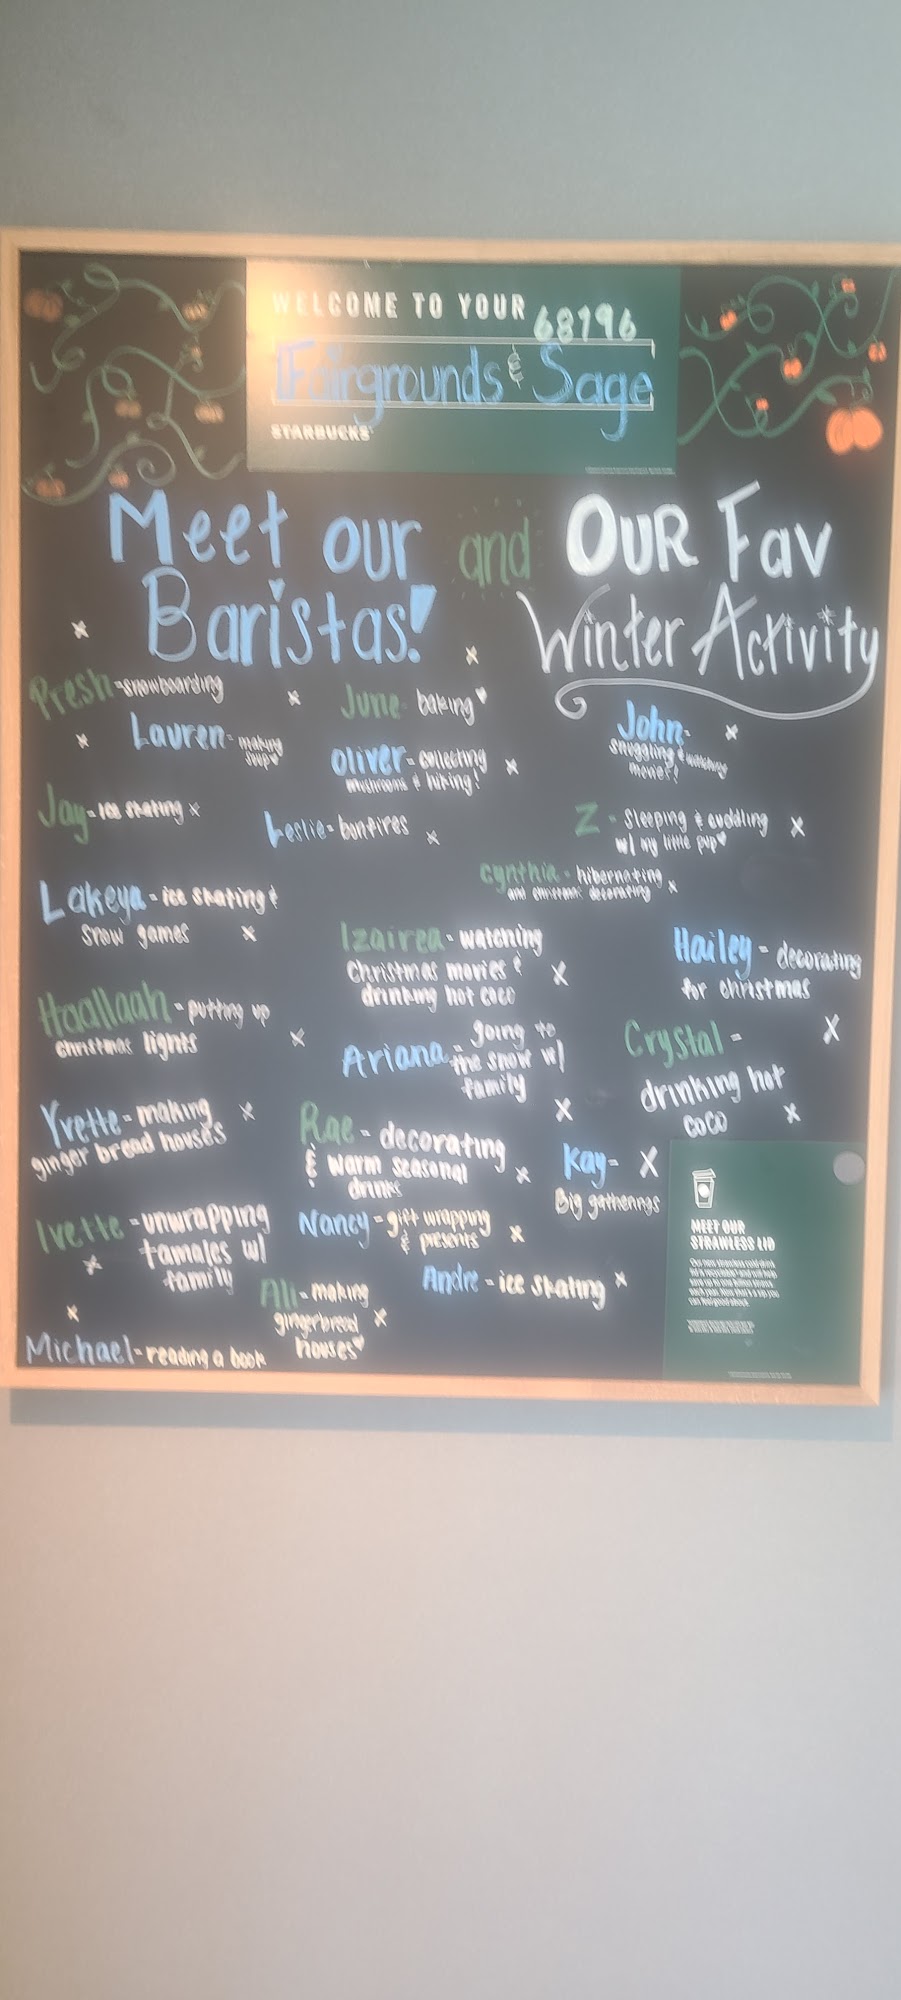 WELCOME TO YOUR 68196
Fairgrounds & Sage
STARBUCKS
Meet our and OUR Fav
Baristas! Winter Activity
Presh - snowboarding
June - baking
John -
snuggling & watching
movies!
Lauren - making
soup
Oliver - collecting
mushrooms & hiking!
Jay - ice skating
Leslie - bonfires
Z - sleeping & cuddling
w/ my little pup
Cynthia - hibernating
and christmas decorating
Lakeya - ice skating &
snow games
Izairea - watching
Christmas movies &
drinking hot coco
Hailey - decorating
for christmas
Haallaah - putting up
christmas lights
Ariana - going to
the snow w/
family
Crystal -
drinking hot
coco
Yvette - making
ginger bread houses
Rae - decorating
& warm seasonal
drinks
Kay -
Big gatherings
Ivette - unwrapping
tamales w/
family
Nancy - gift wrapping
& presents
Ali - making
gingerbread
houses
Andre - ice skating
Michael - reading a book
MEET OUR
STRAWLESS LID